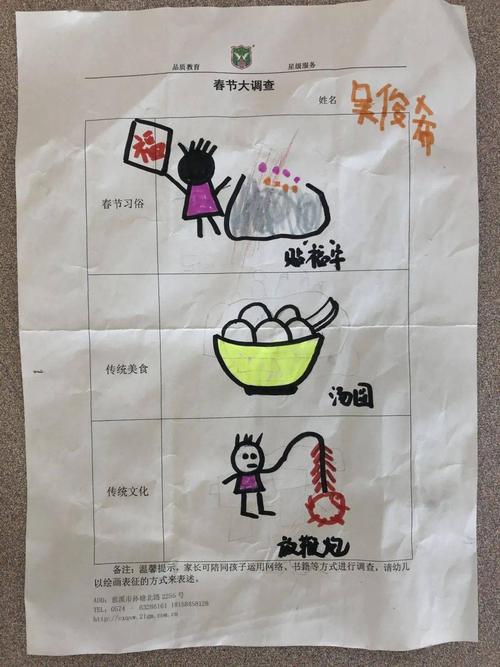 品质教育 星级服务
春节大调查
姓名 吴俊希
福
春节习俗
贴福牛
传统美食
汤圆
传统文化
放鞭炮
备注：温馨提示，家长可陪同孩子运用网络、书籍等方式进行调查，请幼儿
以绘画表征的方式来表述。
ADD: 慈溪市孙塘北路2255号
TEL: 0574 - 63286161 18158458128